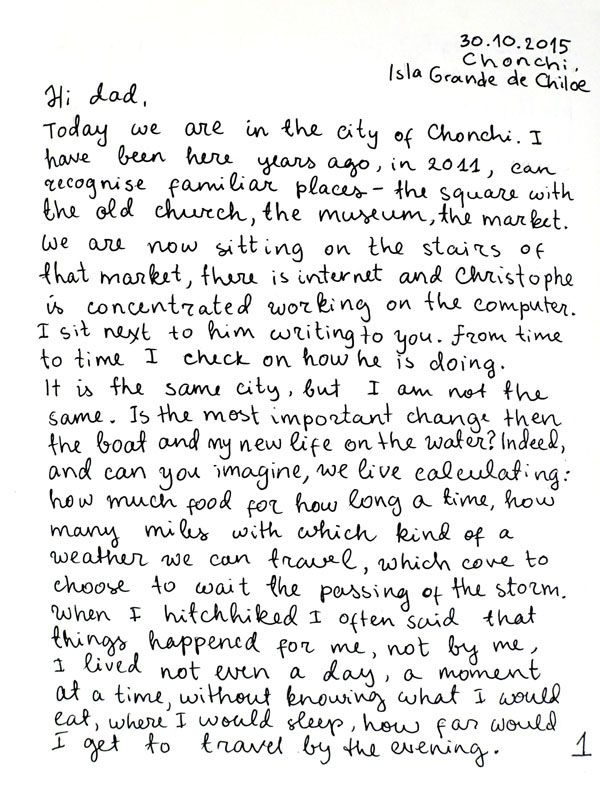 30.10.2015
Chonchi,
Isla Grande de Chiloe
Hi dad,
Today we are in the city of Chonchi. I
have been here years ago, in 2011, can
recognise familiar places - the square with
the old church, the museum, the market.
We are now sitting on the stairs of
that market, there is internet and Christophe
is concentrated working on the computer.
I sit next to him writing to you. From time
to time I check on how he is doing.
It is the same city, but I am not the
same. Is the most important change then
the boat and my new life on the water? Indeed,
and can you imagine, we live calculating:
how much food for how long a time, how
many miles with which kind of a
weather we can travel, which cove to
choose to wait the passing of the storm.
When I hitchhiked I often said that
things happened for me, not by me,
I lived not even a day, a moment
at a time, without knowing what I would
eat, where I would sleep, how far would
I get to travel by the evening.
1